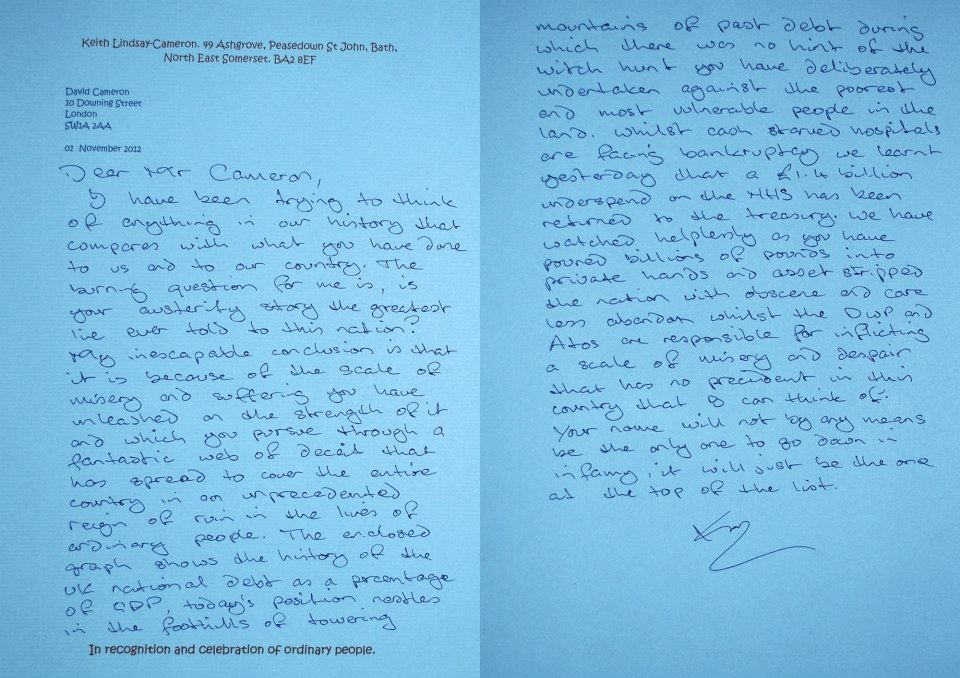 Keith Lindsay-Cameron. 49 Ashgrove, Peasedown St John, Bath,
North East Somerset. BA2 8EF
David Cameron
10 Downing Street
London
SW1A 2AA
02 November 2012
Dear Mr Cameron,
I have been trying to think
of anything in our history that
compares with what you have done
to us and to our country. The
burning question for me is, is
your austerity story the greatest
lie ever told to this nation?
My inescapable conclusion is that
it is because of the scale of
misery and suffering you have
unleashed on the strength of it
and which you pursue through a
fantastic web of deceit that
has spread to cover the entire
country in an unprecedented
reign of ruin in the lives of
ordinary people. The enclosed
graph shows the history of the
UK national debt as a percentage
of GDP, today's position nestles
in the foothills of towering
In recognition and celebration of ordinary people.
mountains of past debt during
which there was no hint of the
witch hunt you have deliberately
undertaken against the poorest
and most vulnerable people in the
land. Whilst cash starved hospitals
are facing bankruptcy we learnt
yesterday that a £1.4 billion
underspend on the NHS has been
returned to the treasury. We have
watched helplessly as you have
poured billions of pounds into
private hands and asset stripped
the nation with obscene and care
less abandon whilst the DWP and
Atos are responsible for inflicting
a scale of misery and despair
that has no precident in this
country that I can think of.
Your name will not by any means
be the only one to go down in
infamy, it will just be the one
at the top of the list.